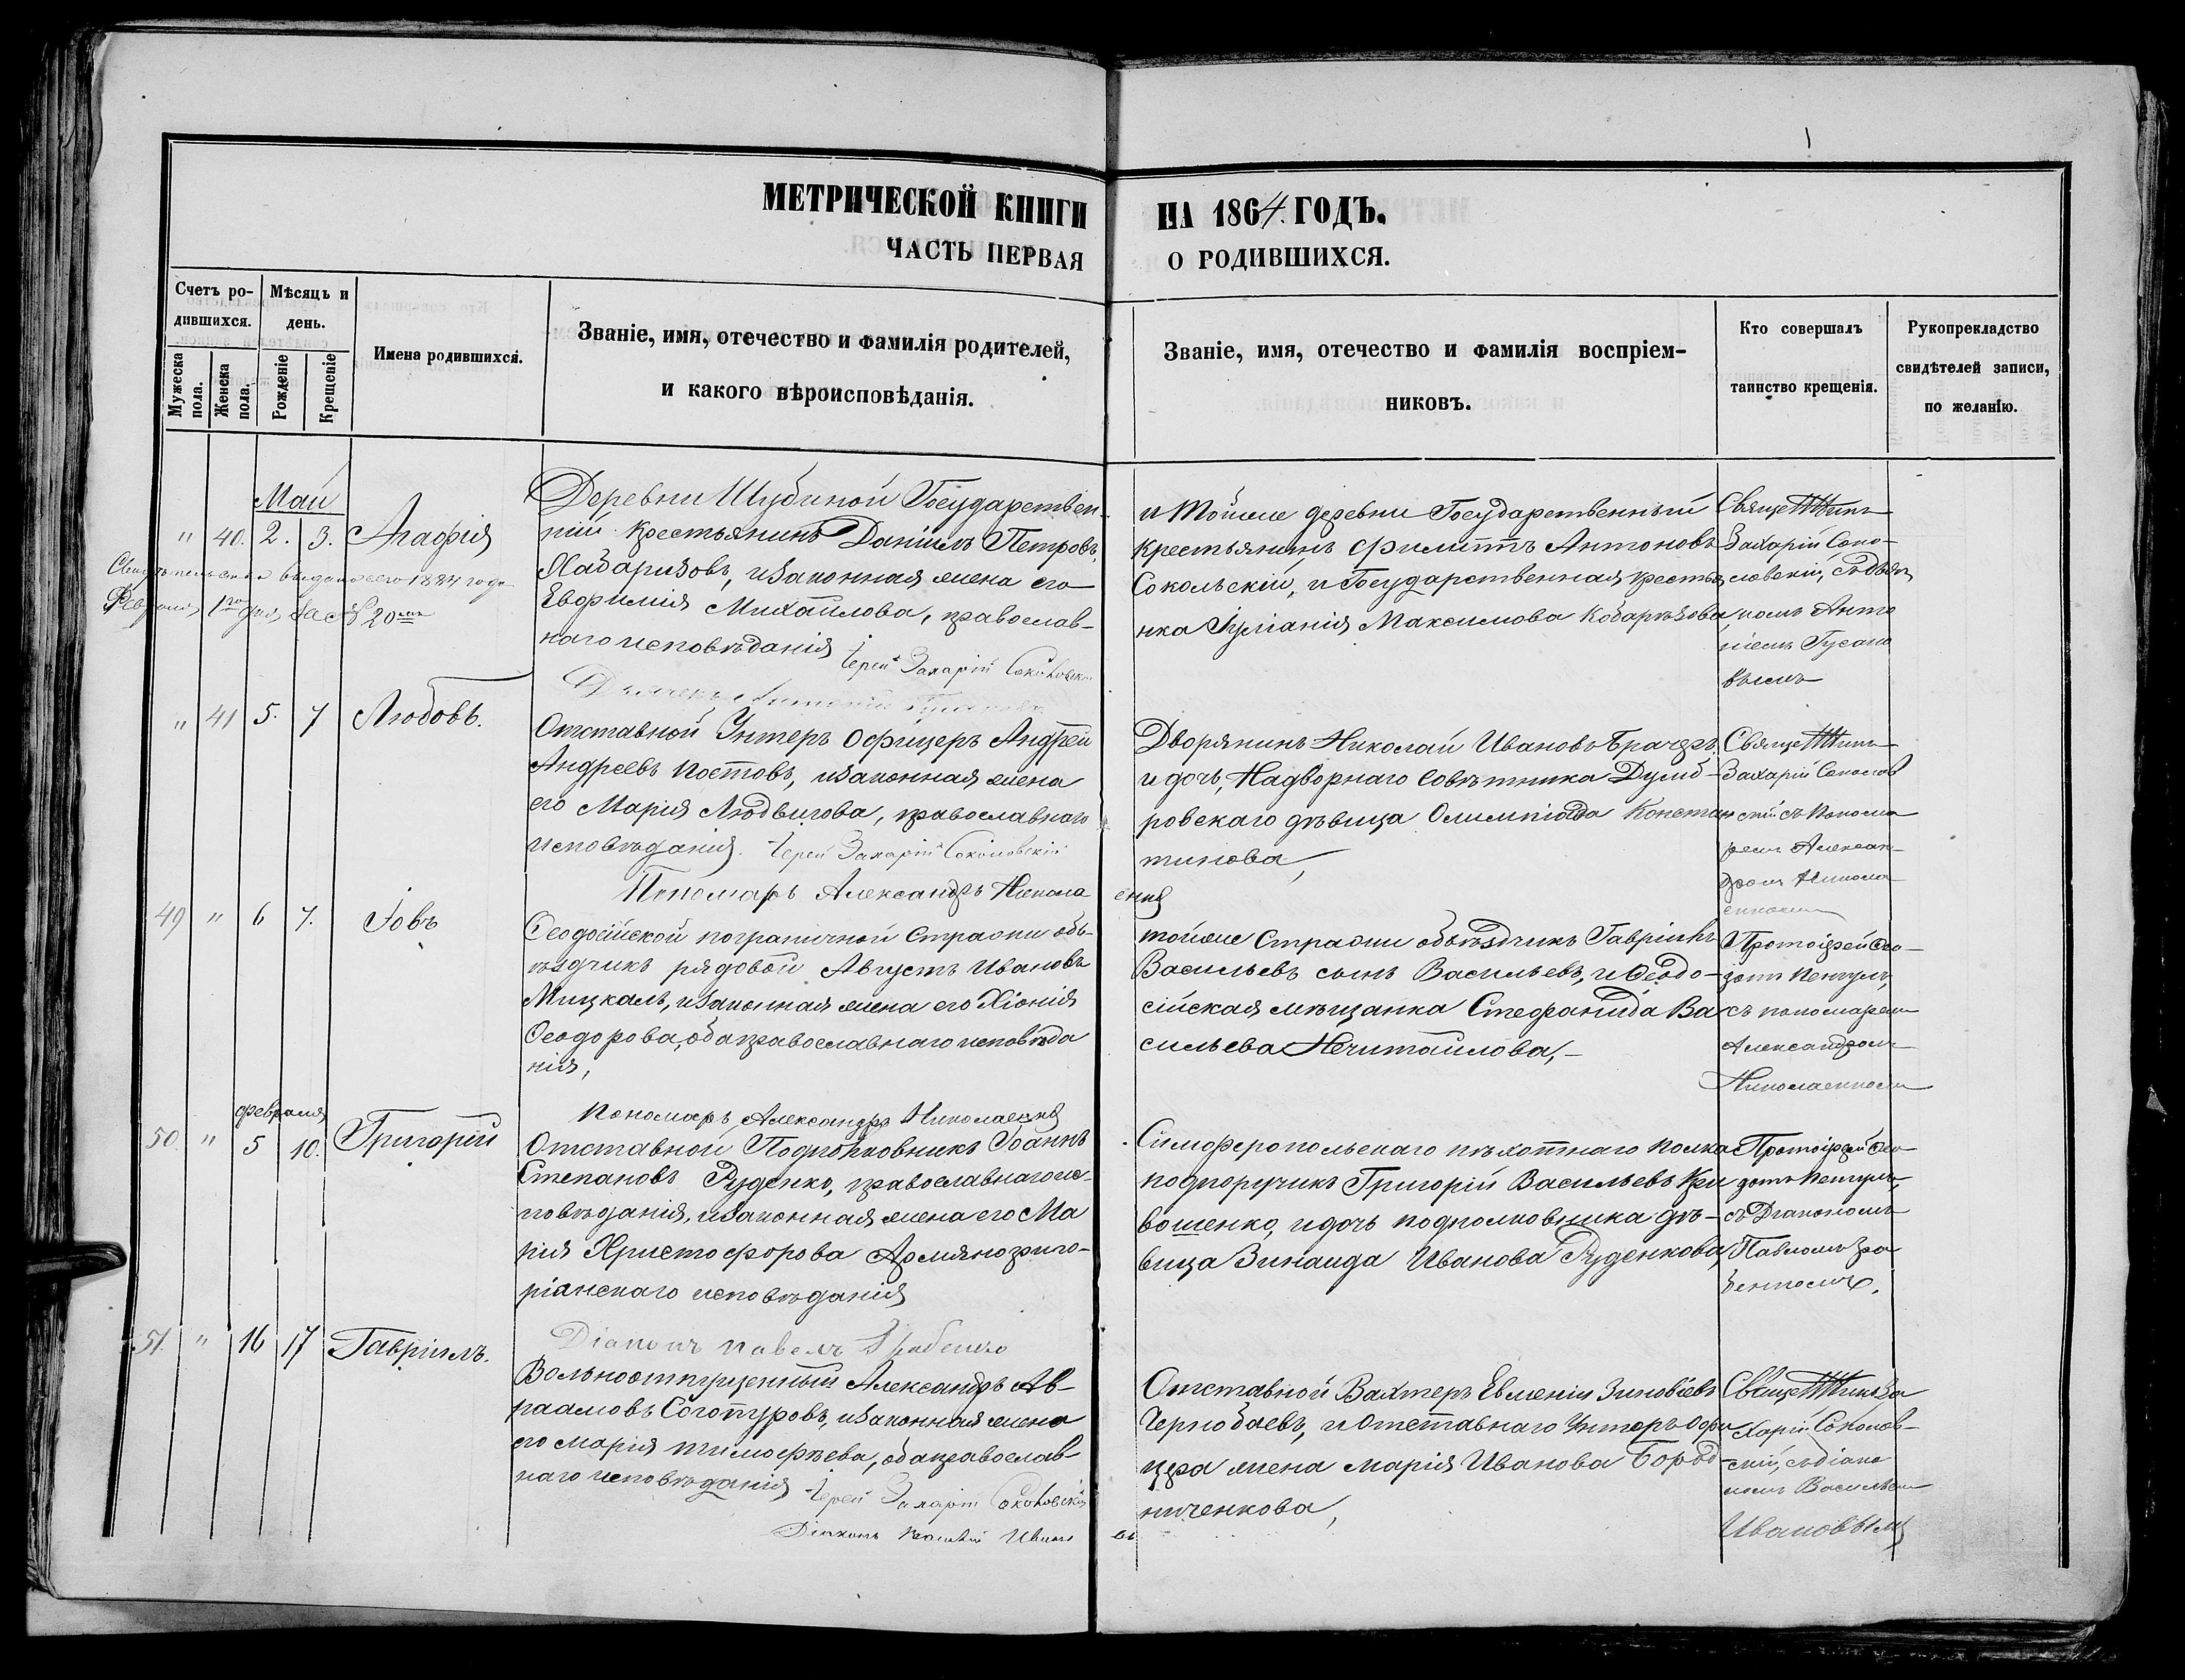 МЕТРИЧЕСКОЙ КНИГИ
ЧАСТЬ ПЕРВАЯ
НА 1864. ГОДЪ.
О РОДИВШИХСЯ.
Счетъ ро-
дившихся.
Мужеска
пола.
Женска
пола.
Мѣсяцъ и
день.
Рожденіе
Крещеніе
Имена родившихся.
Званіе, имя, отечество и фамилія родителей,
и какого вѣроисповѣданія.
Званіе, имя, отечество и фамилія воспріем-
никовъ.
Кто совершалъ
таинство крещенія.
Рукоприкладство
свидѣтелей записи,
по желанію.
Май
" 40. 2. 3. Агафія
Свидѣтельство выдано сего 1884 года
Февраля 1го дня за № 20мъ
Деревни Шубиной Государствен-
ній Крестьянинъ Даніилъ Петровъ
, изаконная жена его
Евфимія Михайлова, православ-
наго исповѣданія
Іерей Захарій Соколовскій
и тойже деревни Государственный
Крестьянинъ Филиппъ Антоновъ
Сокольскій, и Государственная кресть
нка Іуліанія Максимова
Священникъ
Захарій Соко-
ловскій, съ дья
комъ Анто
ніемъ Гусако
вымъ
" 41 5. 7 Любовь.
Отставной Унтеръ Офицеръ Андрей
Андреевъ Постовъ, изаконная жена
его Марія Людвигова, православнаго
исповѣданія. Іерей Захарій Соколовскій
Пономарь Александръ Никола
енко
Дворянинъ Николай Ивановъ
и дочь, Надворнаго Совѣтника Думб-
ровскаго дѣвица Олимпіада Констан
тинова,
Священникъ
Захарій Соколов
скій съ Понома
ремъ Алексан-
дромъ Никола
енкомъ
49 " 6 7. Іовъ
Ѳеодосійской пограничной Стражи объ-
ѣздчикъ рядовой Августъ Ивановъ
Мицкалъ, изаконная жена его Хіонія
Ѳеодорова, оба православнаго исповѣда
нія,
Пономарь Александръ Николаенко
тойже Стражи объѣздчикъ Гавріилъ
Васильевъ сынъ Васильевъ, и Ѳеодо-
сійская мѣщанка Стефанида Ва
сильева Нечитайлова,
Протоіерей Ѳео
съ пономаремъ
Александромъ
Николаенкомъ
февраля
50 " 5 10. Григорій
Отставной Подполковникъ Іоаннъ
Степановъ Руденко, православнаго ис-
повѣданія, изаконная жена его Ма
рія Христофорова Армяногриго-
ріанскаго исповѣданія
Діаконъ Павелъ Грабенко
Симферопольскаго пѣхотнаго полка
подпоручикъ Григорій Васильевъ Кри
вошенко, и дочь подполковника дѣ-
вица Зинаида Иванова Руденкова,
Протоіерей Ѳео
съ Діакономъ
Павломъ Гра
бенкомъ.
51. " 16 17 Гавріилъ.
Вольноотпущенный Александръ Ав-
раамовъ Соготуровъ, изаконная жена
его Марія Тимофѣева, оба православ-
наго исповѣданія
Іерей Захарій Соколовскій
Діаконъ Василій Ивано
въ
Отставной Вахтеръ Евменій Зиновіевъ
Чернобаевъ, и Отставнаго Унтеръ Офи
цера жена Марія Иванова Бород
ниченкова,
Священникъ За
харій Соколов-
скій, съ діако
номъ Васильемъ
Ивановымъ